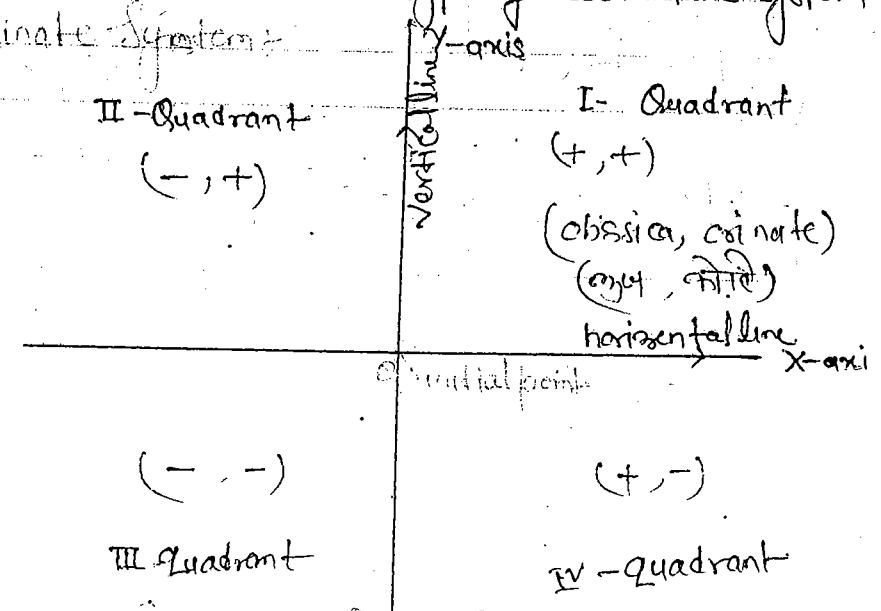 inate System:
Y-axis
vertical line
II-Quadrant
(-,+)
I- Quadrant
(+,+)
(obssica, orinate)
(भुज, कोटि)
horizental line
X-axi
O initial point
(-,-)
III Quadrant
(+,-)
IV-quadrant